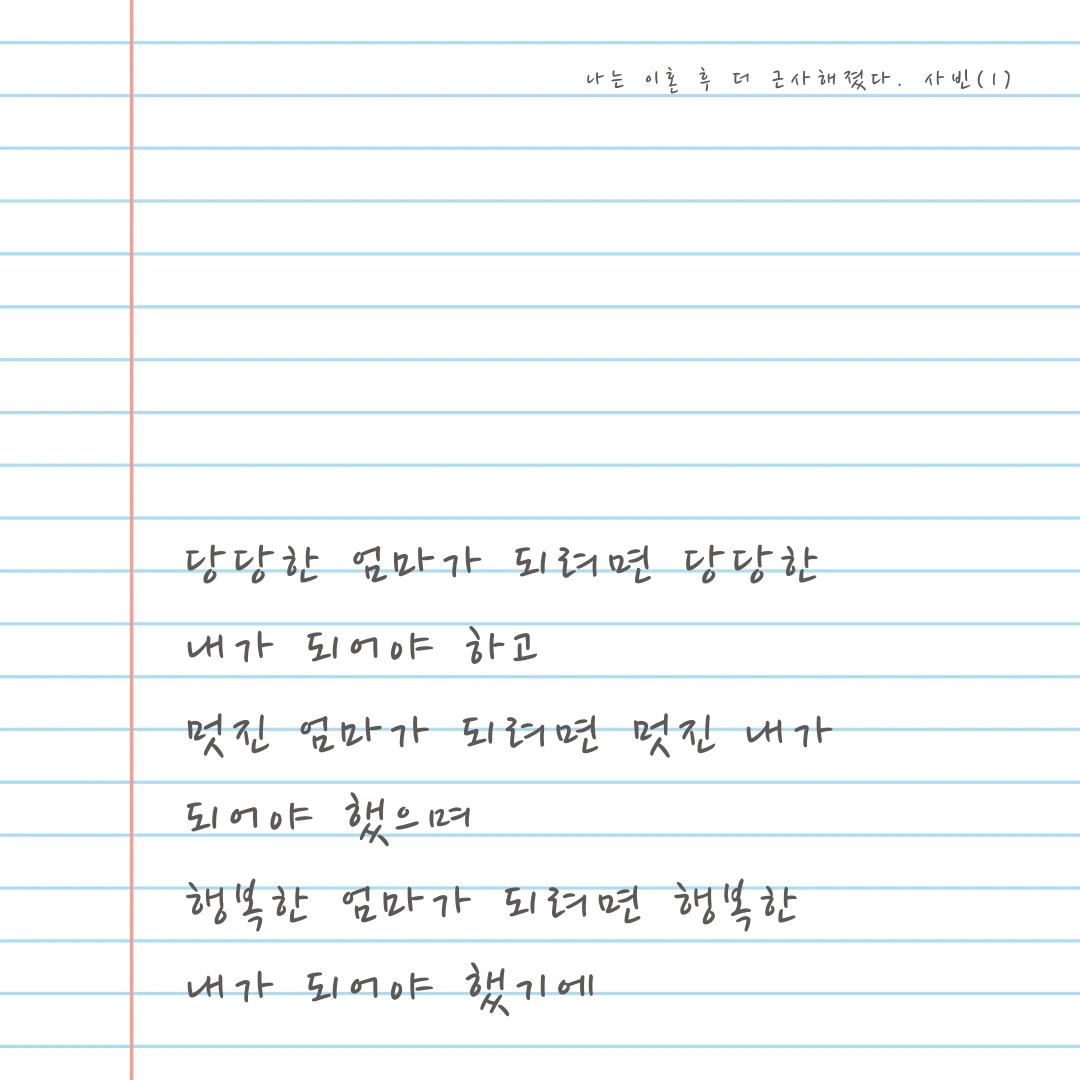 나는 이혼 후 더 근사해졌다. 사빈(1)
당당한 엄마가 되려면 당당한
내가 되어야 하고
멋진 엄마가 되려면 멋진 내가
되어야 했으며
행복한 엄마가 되려면 행복한
내가 되어야 했기에